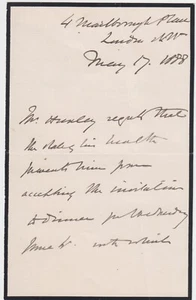 4 Marlborough Place
London N.W.
May 17. 1888
Mr Huxley regrets that
the state of his health
prevents him from
accepting the invitation
to dinner for Wednesday
June 6th with which